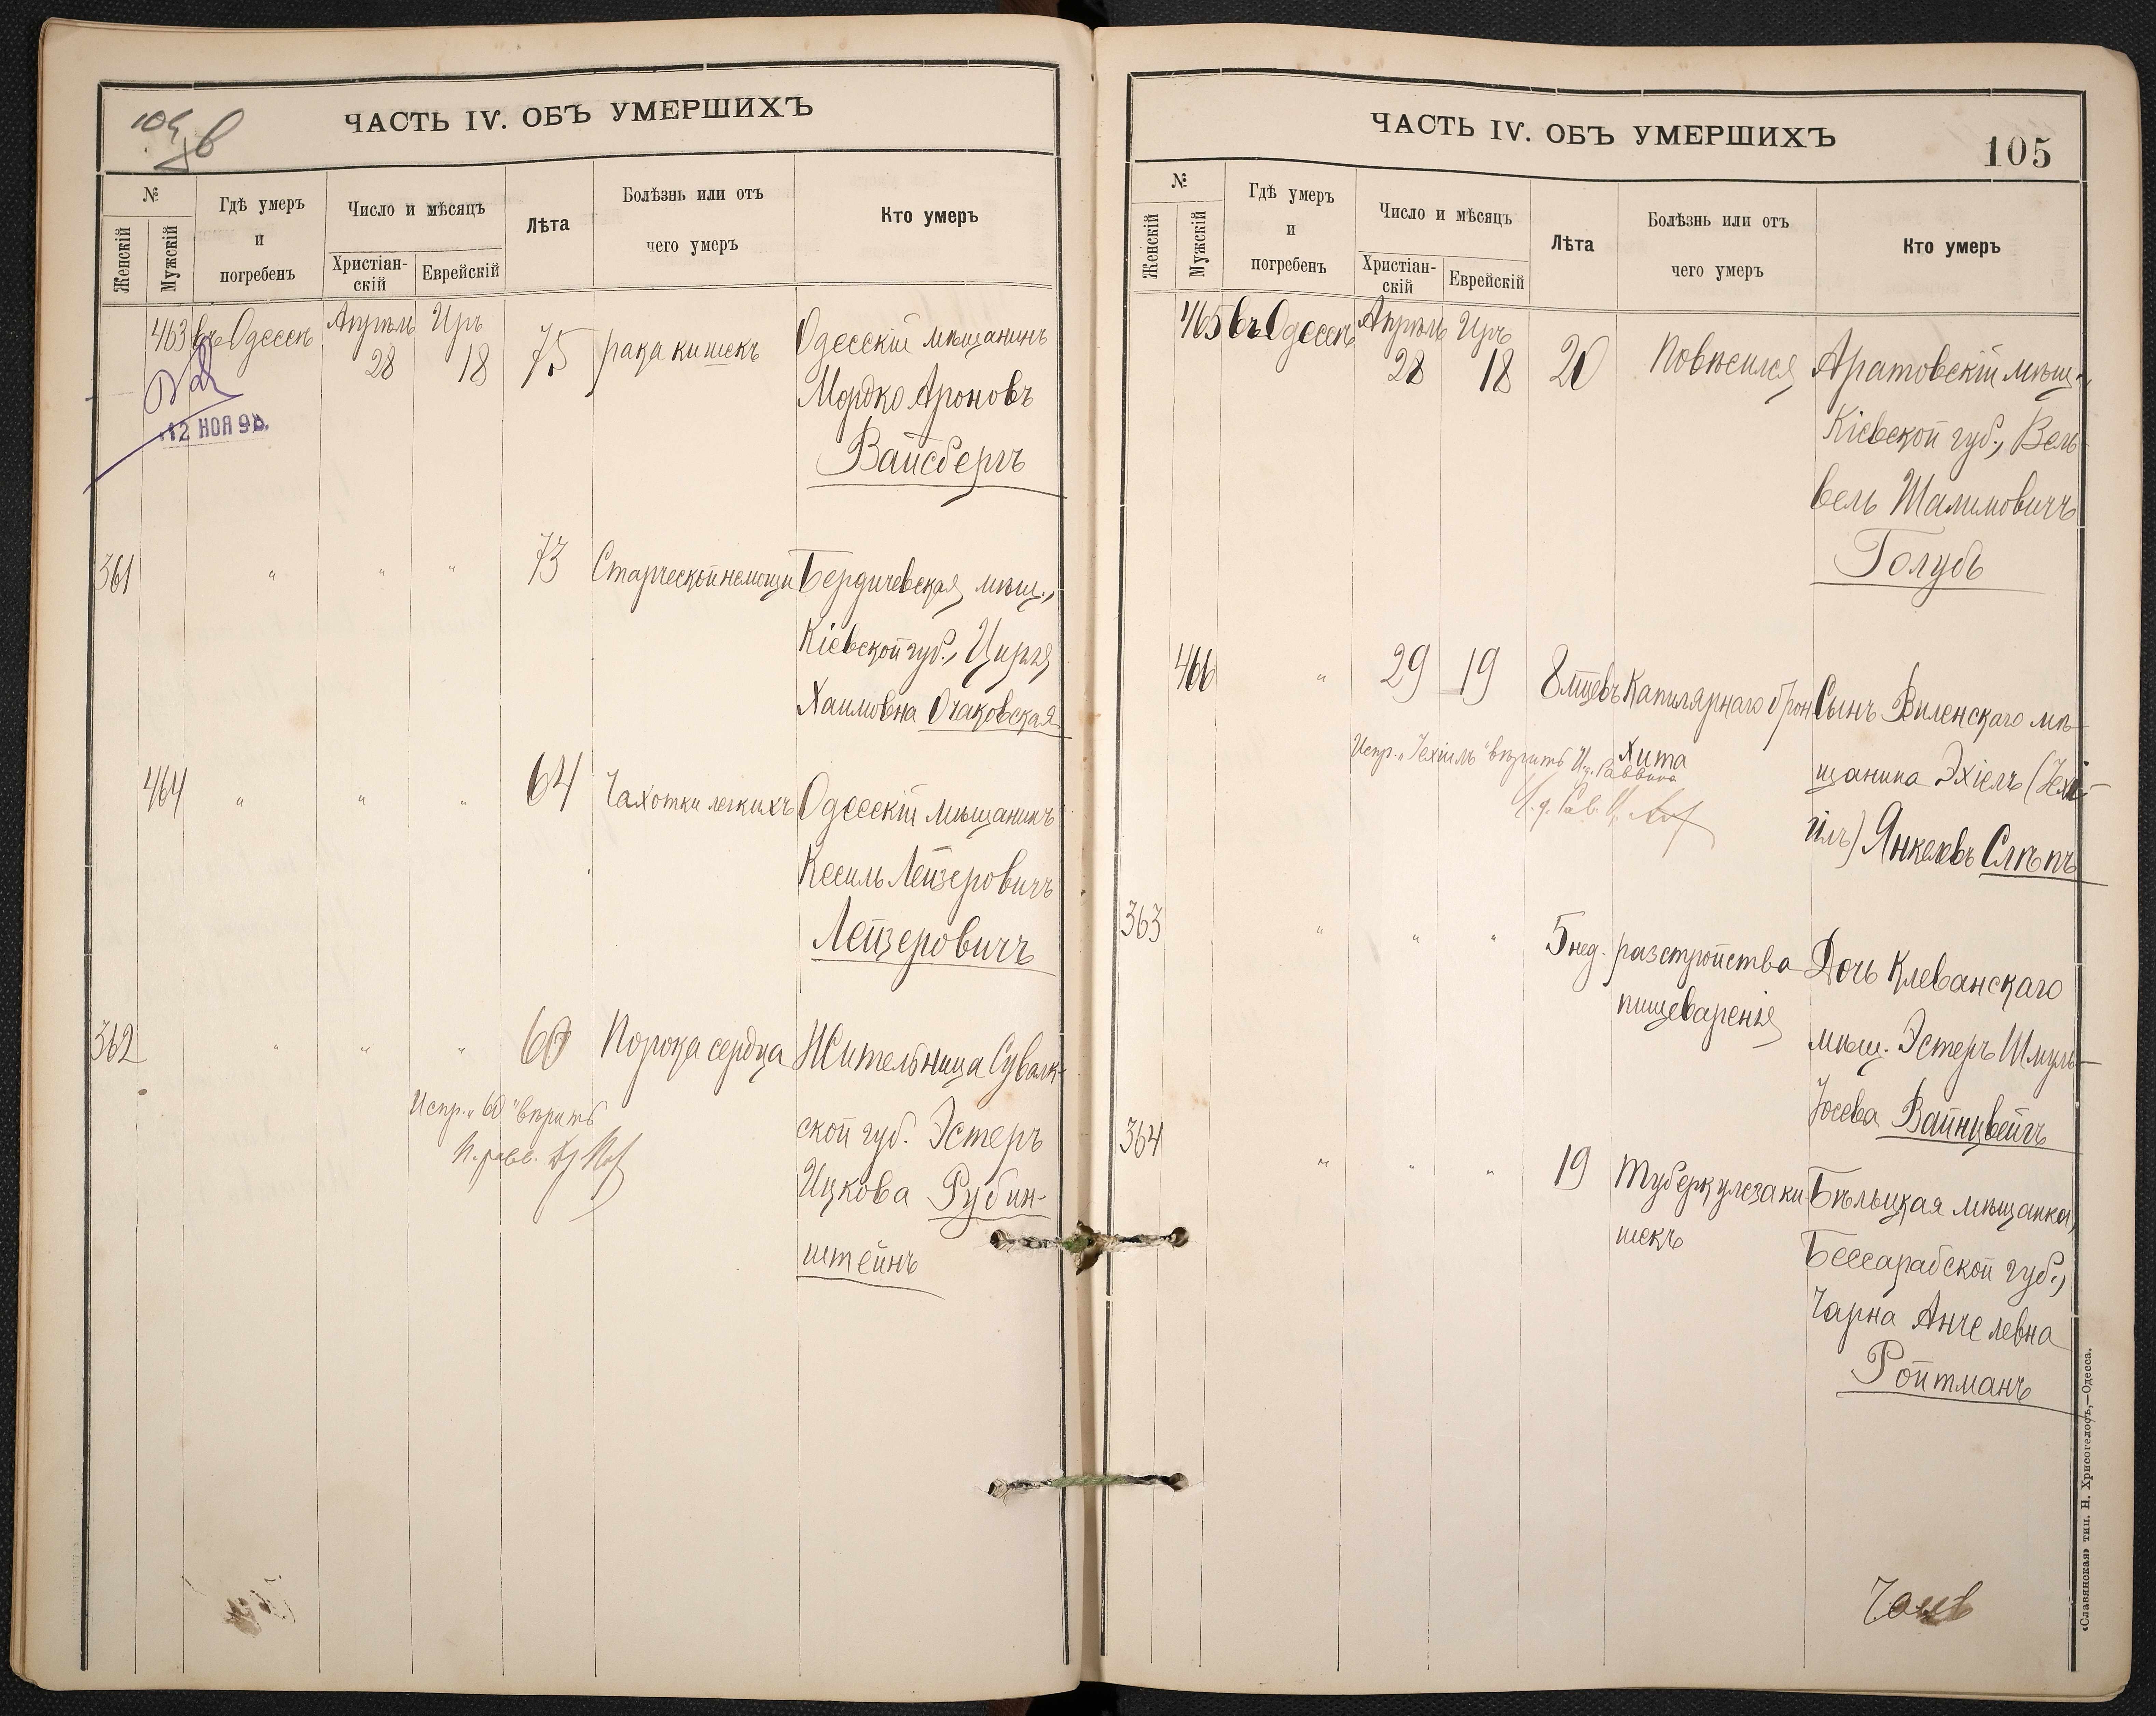 ЧАСТЬ IV. ОБЪ УМЕРШИХЪ
№
Женскій
Мужскій
Гдѣ умеръ
и
погребенъ
Число и мѣсяцъ
Христіан-
скій
Еврейскій
Лѣта
Болѣзнь или отъ
чего умеръ
Кто умеръ
463 въ Одессѣ Апрѣль Иръ
28 18 75 рака кишекъ Одесскій мѣщанинъ
Мордко Ароновъ
Вайсбергъ
12 НОЯ 9
361 " " " 73 Старческой немощи Бердичевская мѣщ.,
Кіевской губ., Цирля
Хаимовна Очаковская
464 " " " 64 Чахотки легкихъ Одесскій мѣщанинъ
Кесиль Лейзеровичъ
Лейзеровичъ
362 " " " 60 Порока сердца Жительница Сувалк-
ской губ. Эстеръ
Ицкова Рубин-
штейнъ
Испр. "60" вѣрить
ЧАСТЬ IV. ОБЪ УМЕРШИХЪ
105
№
Женскій
Мужскій
Гдѣ умеръ
и
погребенъ
Число и мѣсяцъ
Христіан-
скій
Еврейскій
Лѣта
Болѣзнь или отъ
чего умеръ
Кто умеръ
465 въ Одессѣ Апрѣль Иръ
28 18 20 Повѣсился Аратовскій мѣщ.,
Кіевской губ., Вель-
вель Шалимовичъ
Голубь
466 " 29 19 8 мцевъ Капилярнаго брон- Сынъ Виленскаго мѣ-
хита
щанина Эхіель (Іехі-
илъ) Янкелевъ Слѣпъ
Испр. "Іехіилъ" вѣрить И. д. Раввина
363 " " " 5 нед. разстройства Дочь Клеванскаго
пищеваренія
мѣщ. Эстеръ Шмуль-
Іосева Вайнцвейгъ
364 " " " 19 Туберкулеза ки- Бѣльцкая мѣщанка,
шекъ
Бессарабской губ.,
Чарна Анчелевна
Ройтманъ
«Славянская» тип. Н. Хрисогелосъ,—Одесса.